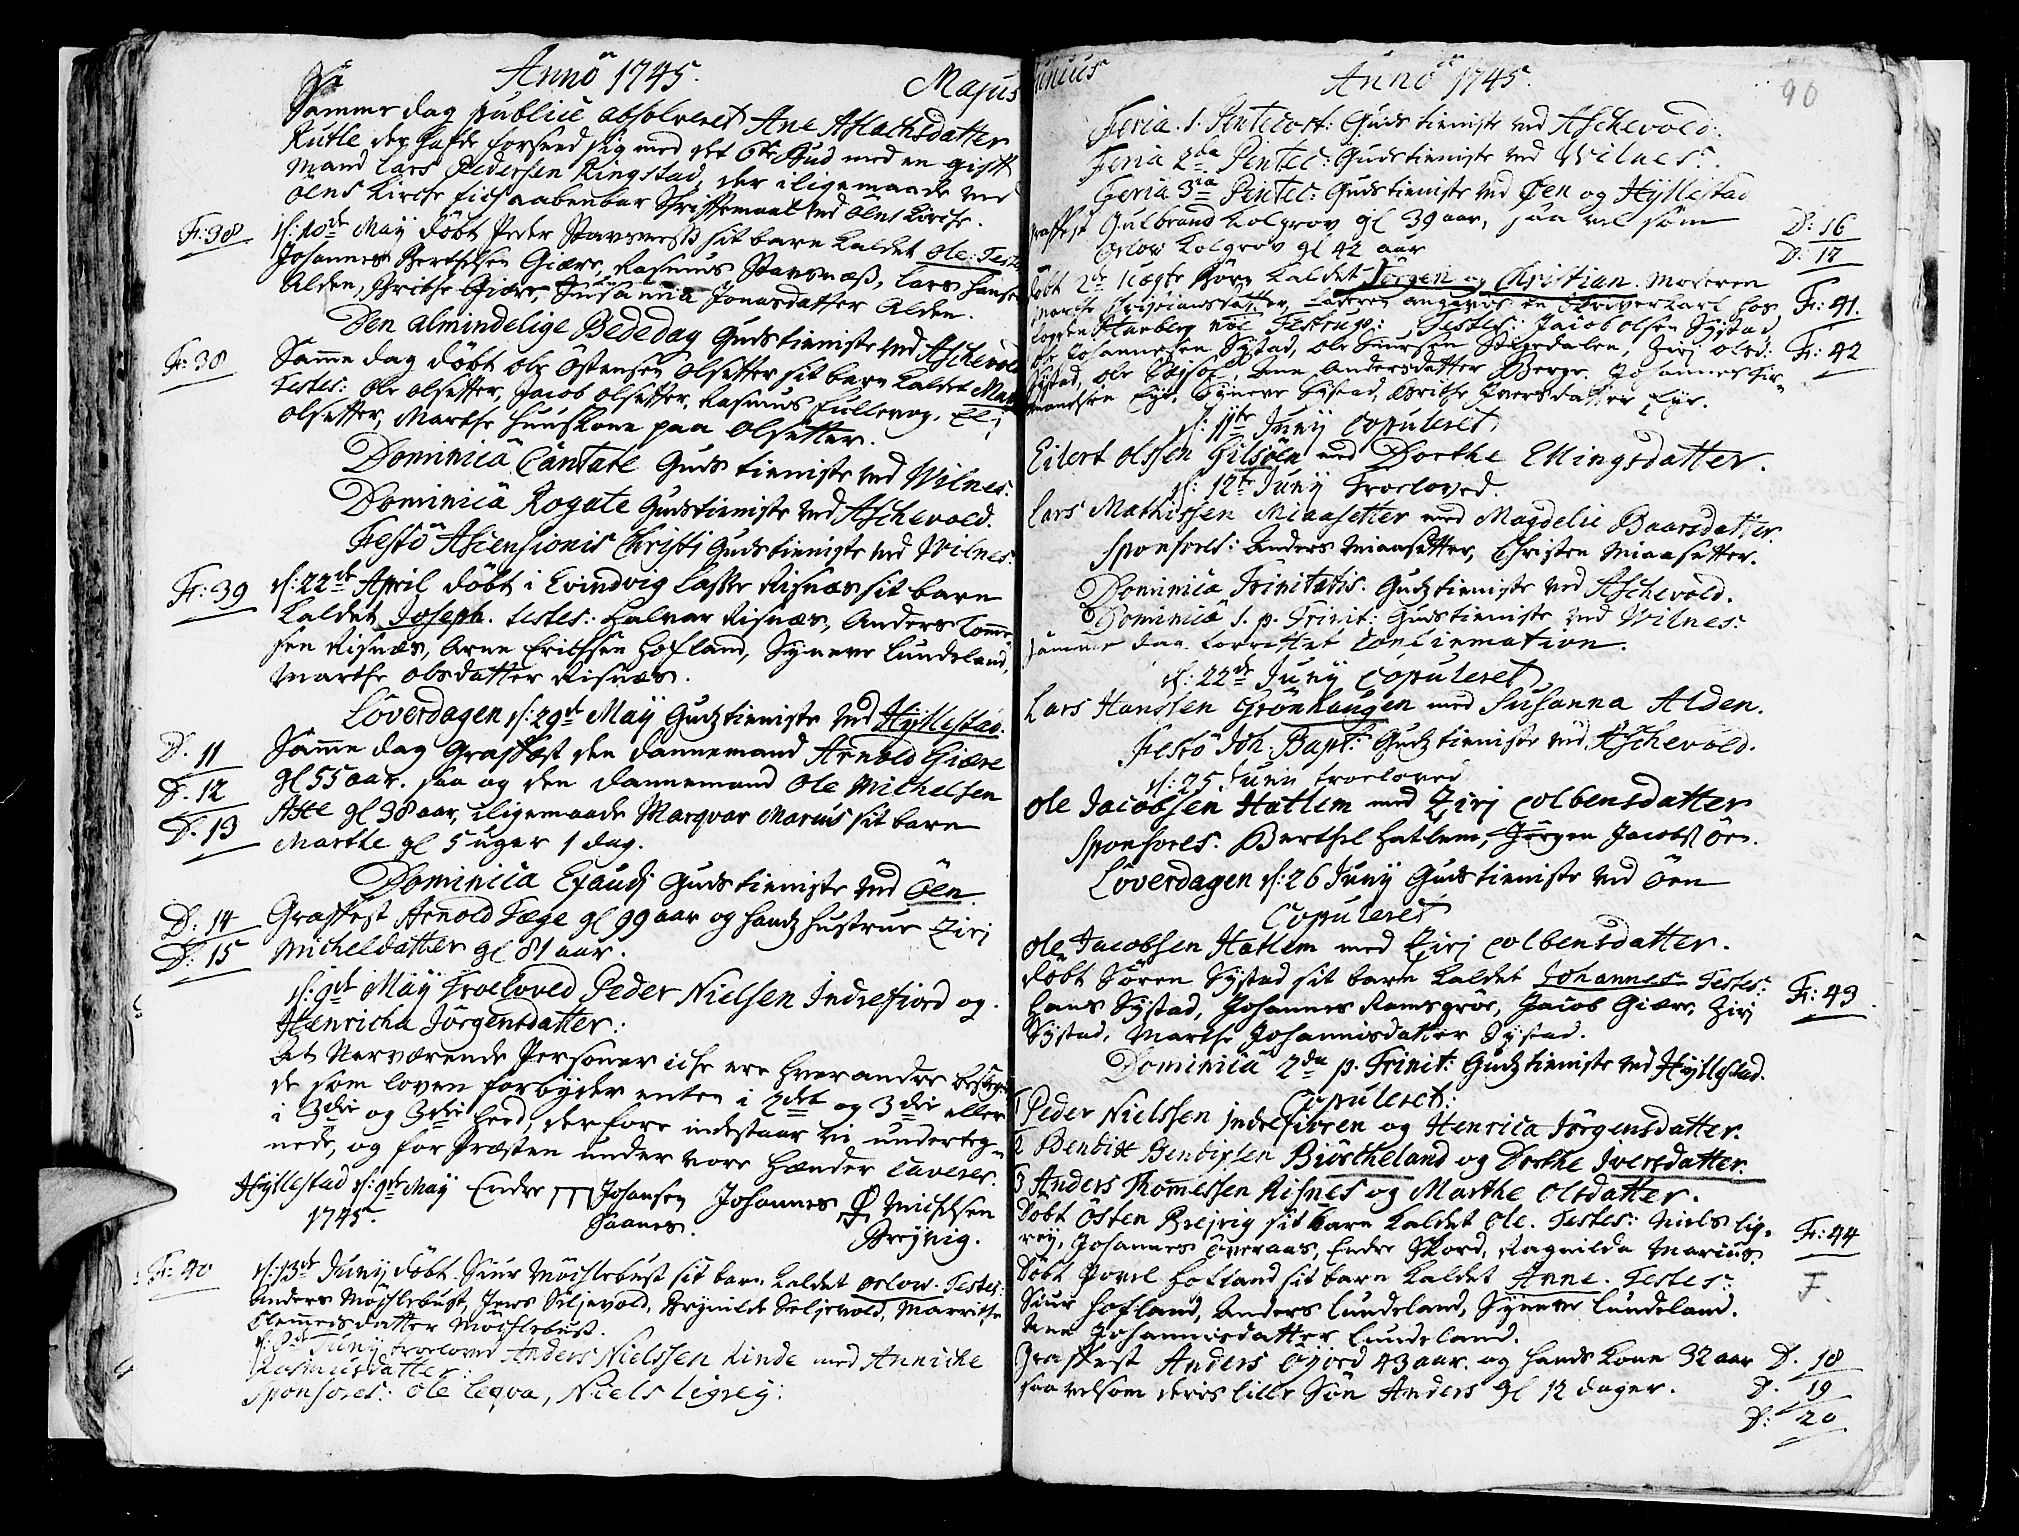 Annö 1745.
Majus
Samme dag publice absolveret Ane Aslachsdatter
Rutle der hafde forseed sig med det 6te Bud med en gift
Mand Lars Pedersen Ringstad, der iligemaade ved
Öens Kirche fich aabenbar Skriftemaal ved Öens Kirche.
Fr: 38 d: 10de May döbt Peder Stavsness sit barn kaldet Ole. Testes
Johannes Berthelsen Giære, Rasmus Stavsnæs, Lars Hansen
Alden, Brithe Giære, Susanna Jonasdatter Alden.
Den Almindelige Bededag Gudstieniste ved Aschevold
Fr: 38 Samme dag döbt Ole Östensen Olsetter sit barn kaldet
Testes: Ole Olsetter, Jacob Olsetter, Rasmus Fullevog,
Olsetter, Marthe huuskone paa Olsetter.
Dominica Cantate Gudstieniste ved Wilnes:
Dominica Rogate Gudstieniste ved Aschevold.
Festö Ascensionis Christi Gudstieniste ved Wilnes:
Fr: 39 d: 22de April döbt i Evindvig Lasse Risnæs sit barn
kaldet Joseph. Testes: Halvar Risnæs, Anders Tomme
sen Risnæs, Arne Erichsen Hofland, Synneve Lundeland,
Marthe Olsdatter Risnæs.
Löverdagen d: 29de May Gudstieniste ved Hyllestad.
D. 11 Samme dag Grafæst den Dannemand Arnold Giære
D. 12 gl 55 aar. saa og den Dannemand Ole Michelsen
D. 13 Atle gl 38 aar, iligemaade Marqvar Marius sit barn
Marthe gl 5 uger 1 dag.
Dominica Exaudi Gudstieniste ved Öen.
D: 14 Graffest Arnold Fæge gl 99 aar og hands hustrue Ziri
D: 15 Micheldatter gl 81 aar.
d: 9de May Troeloved Peder Nielsen Indrefiord og
Henricha Jörgensdatter:
At Nerværende Personer iche ere hverandre beslegt
de som loven forbyder enten i 2det og 3die eller
i 3die og 3die leed, derfore indestaar vi underteg-
nede, og for Præsten under vore Hænder caverer.
Hyllestad d: 9de May Endre Johansen Johannes Michelsen
1745. Staanes. Breyvig.
Fr: 40 d: 13de Juny döbt Siur Möchlebust sit barn kaldet Orlow. Testes:
Anders Möchlebust, Jens Seljevold, Brynilde Seljevold, Marrithe
Clemmedsdatter Möchlebust.
Juny troeloved Anders Nielssen Linde med Annicke
Rasmusdatter:
Sponsores: Ole Leqva, Niels Ligrey:
Junius
Annö 1745.
90
Feria. 1. Pentecost: Gudstieniste ved Aschevold.
Feria 2da Pentec: Gudstieniste ved Wilnes:
Feria 3ia Pentec: Gudstieniste ved Öen og Hyllestad
Graffest Gulbrand Kolgrov gl 39 aar, saa vel som D: 16
Orlow Kolgrov gl 42 aar D: 17
Döbt 2de Uægte Börn kaldet Jörgen og Christian. Moderen
Marthe Christiansdatter, Faderen angaves en Skriverkarl hos Fr: 41.
Testes: Jacob Olsen Systad,
Johannesen Systad, Ole Siursen Ziri Olsd: Fr: 42
Systad, Ole Andersdatter Berge, Johannes
Eyr, Synneve Systad, Brithe Iversdatter Eyr.
d: 11te Juny Copuleret
Eilert Olssen Gilsöen med Dorthe Ellingsdatter.
d: 12te Juny Troeloved.
Lars Mathissen Miaasetter med Magdeli Baarsdatter
Sponsores: Anders Miaasetter, Christen Miaasetter.
Dominica Trinitatis. Gudstieniste ved Aschevold.
Dominica 1. p. Trinit: Gudstieniste ved Wilnes:
samme dag forrettet Confirmation.
d: 22de Juny Copuleret
Lars Hanssen Grönhaugen med Susanna Alden.
Festö Joh. Bapt: Gudstieniste ved Aschevold.
d: 25 Juny troeloved
Ole Jacobsen Hatlem med Ziri Colbensdatter
Sponsores. Berthel Hatlem, Jörgen Jacobs Ör.
Löverdagen d: 26 Juny Gudstieniste ved Öen
Copuleret
Ole Jacobsen Hatlem med Ziri Colbensdatter.
Döbt Sören Systad sit barn kaldet Johannes Testes: Fr: 43
Hans Systad, Johannes Ramsgröe, Jacob Giære, Ziri
Systad, Marthe Johannisdatter Systad.
Dominica 2da p. Trinit: Gudstieniste ved Hyllestad.
Copuleret:
1 Peder Nielssen Indrefioren og Henrica Jörgensdatter.
2 Bendix Bendixsen Biörtheland og Dorthe Iversdatter.
3 Anders Thomessen Risnes og Marthe Olsdatter.
Döbt Östen Brejvig sit barn kaldet Ole. Testes: Niels Lig- Fr: 44
rey, Johannes Överaas, Endre Skord, Ragnilda Marius
Döbt Povel Hofland sit barn kaldet Anne. Testes: F.
Siur Hofland, Anders Lundeland, Synneve Lundeland.
Ane Johannisdatter Lundeland.
Graffest Anders 43 aar. og hands kone 32 aar D. 18
saa velsom deris lille Sön Anders gl 12 dager. D. 19
D: 20